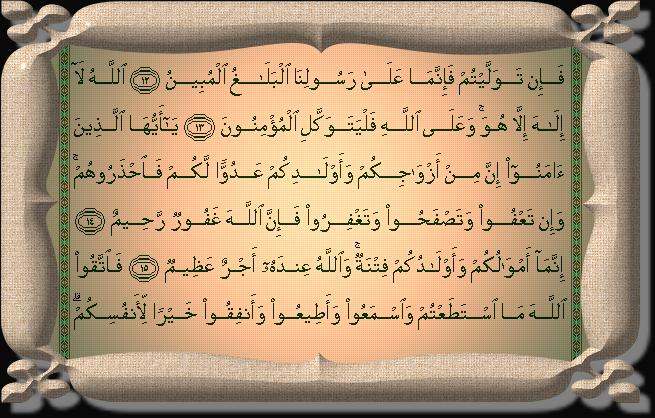 فَإِن تَوَلَّيْتُمْ فَإِنَّمَا عَلَىٰ رَسُولِنَا ٱلْبَلَـٰغُ ٱلْمُبِينُ ١٢ ٱللَّهُ لَآ
إِلَـٰهَ إِلَّا هُوَ ۚ وَعَلَى ٱللَّهِ فَلْيَتَوَكَّلِ ٱلْمُؤْمِنُونَ ١٣ يَـٰٓأَيُّهَا ٱلَّذِينَ
ءَامَنُوٓا۟ إِنَّ مِنْ أَزْوَٰجِكُمْ وَأَوْلَـٰدِكُمْ عَدُوًّا لَّكُمْ فَٱحْذَرُوهُمْ ۚ
وَإِن تَعْفُوا۟ وَتَصْفَحُوا۟ وَتَغْفِرُوا۟ فَإِنَّ ٱللَّهَ غَفُورٌ رَّحِيمٌ ١٤
إِنَّمَآ أَمْوَٰلُكُمْ وَأَوْلَـٰدُكُمْ فِتْنَةٌ ۚ وَٱللَّهُ عِندَهُۥٓ أَجْرٌ عَظِيمٌ ١٥ فَٱتَّقُوا۟
ٱللَّهَ مَا ٱسْتَطَعْتُمْ وَٱسْمَعُوا۟ وَأَطِيعُوا۟ وَأَنفِقُوا۟ خَيْرًا لِّأَنفُسِكُمْ ۗ